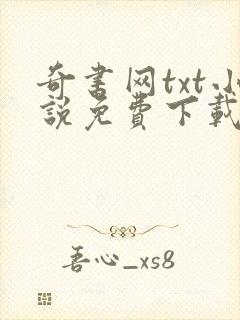 奇书网txt小
說免費下載
吾心_xs8